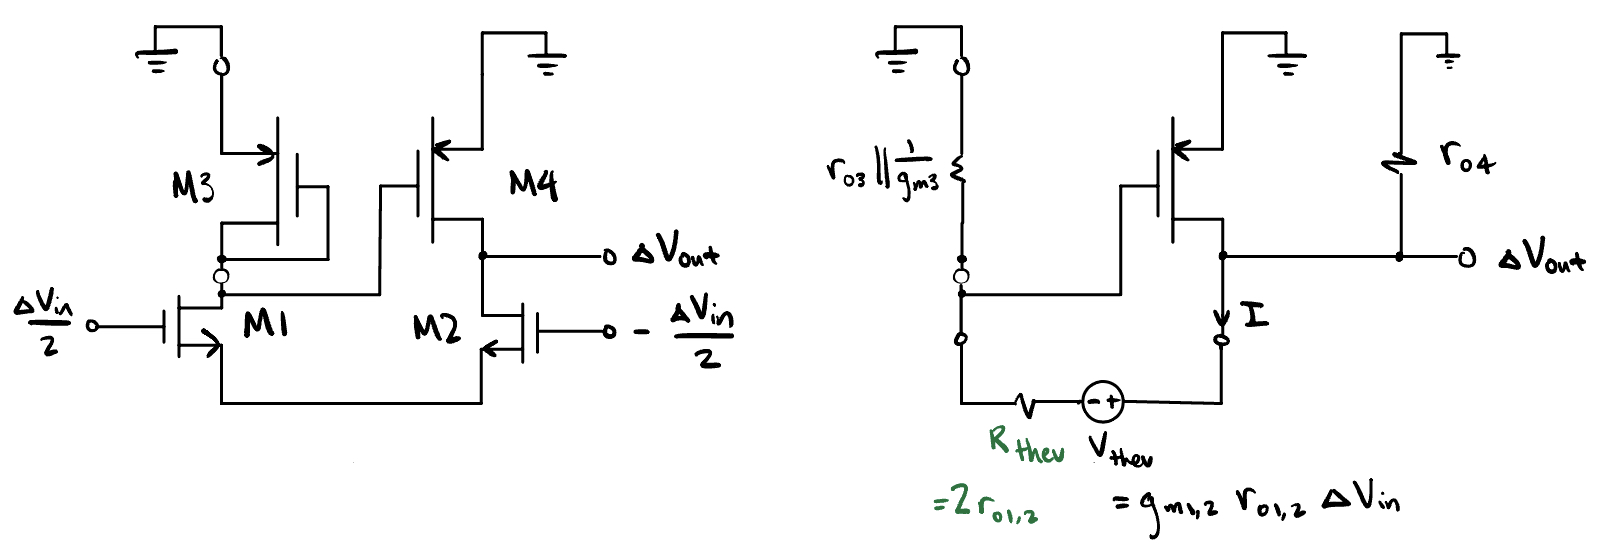 M3
M4
ΔVout
ΔVin
2
M1
M2
- ΔVin
2
ro3 || 1
gm3
ro4
ΔVout
I
- +
Rthev
Vthev
=2ro1,2
= gm1,2 ro1,2 ΔVin